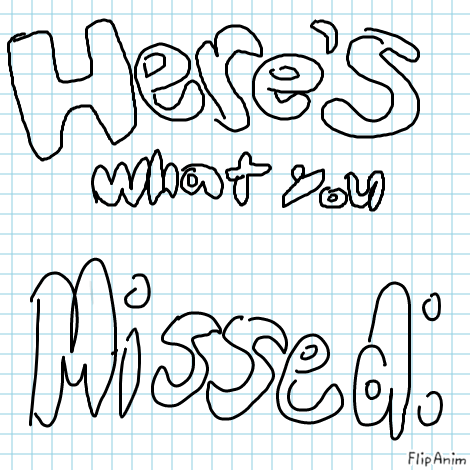 Here's
what you
Missed:
FlipAnim